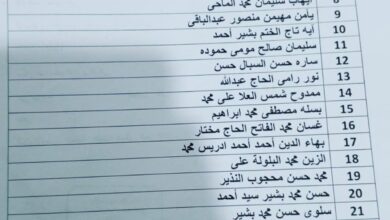 ايهاب سليمان محمد الماحى 8
يامن مهيمن منصور عبدالباقى 9
ايه تاج الختم بشير أحمد 10
سليمان صالح مومى حموده 11
ساره حسن السيال حسن 12
نور رامى الحاج عبدالله 13
ممدوح شمس العلا على محمد 14
بسله مصطفى محمد ابراهيم 15
غسان محمد الفاتح الحاج مختار 16
بهاء الدين أحمد أحمد ادريس محمد 17
الزين محمد البلولة على 18
محمد حسن محجوب النذير 19
حسن محمد بشير سيد أحمد 20
سلوى حسن محمد بشير 21